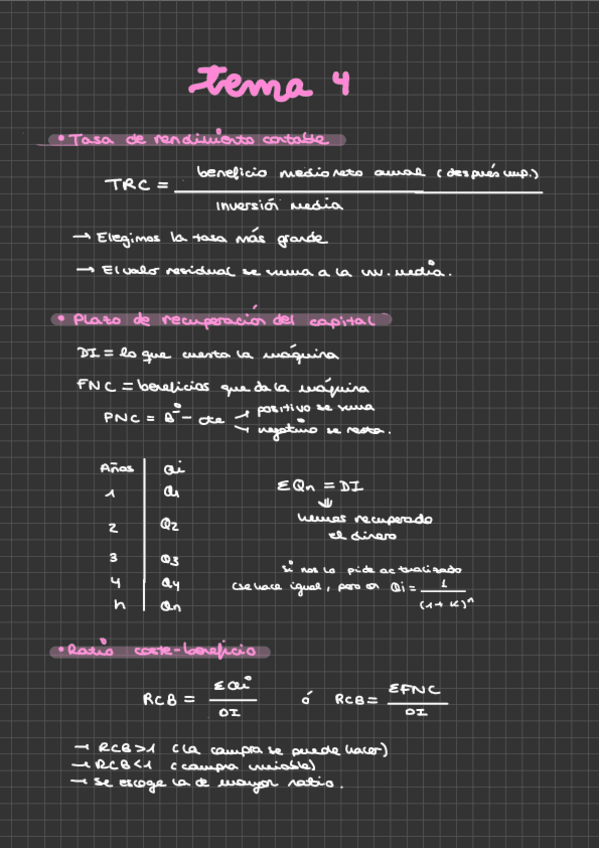 tema 4
• Tasa de rendimiento contable
TRC = beneficio medio neto anual (después imp.)
inversión media
→ Elegimos la tasa más grande
→ El valor residual se suma a la inv. media.
• Plazo de recuperación del capital
DI = lo que cuesta la máquina
FNC = beneficios que da la máquina
PNC = Bº - cte → positivo se suma
→ negativo se resta.
Años Qi
1 Q1
2 Q2
3 Q3
4 Q4
n Qn
ΣQn = DI
⇓
hemos recuperado
el dinero
si nos lo pide actualizado
(se hace igual, pero en Qi = 1
(1+K)ⁿ
• Ratio coste-beneficio
RCB = ΣQi
DI
ó RCB = ΣFNC
DI
→ RCB>1 (La compra se puede hacer)
→ RCB<1 (compra inviable)
→ Se escoge la de mayor ratio.